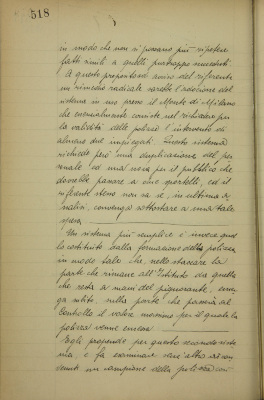 518
in modo che non si possano più ripetere
fatti simili a quelli purtroppo succeduti.
A questo proposito ad avviso del riferente
un rimedio radicale sarebbe l'adozione del
sistema in uso presso il Monte di Milano
che essenzialmente consiste nel richiedere per
la validità delle polizze l'intervento di
almeno due impiegati. Questo sistema
richiede però una duplicazione del per
sonale ed una noia per il pubblico che
dovrebbe passare a due sportelli, ed il
riferente stesso non sa se, in ultima a
nalisi, convenga sottostare a una tale
spesa.
Un sistema più semplice è invece quel
lo costituito dalla formazione della polizza
in modo tale che, nello staccare la
parte che rimane all'Istituto da quella
che resta a mani del pignorante, ven
ga subito, nella parte che passa al
Controllo il valore massimo per il quale la
polizza venne emessa.
Egli propende per questo secondo siste
ma, e fa esaminare
un campione della polizza